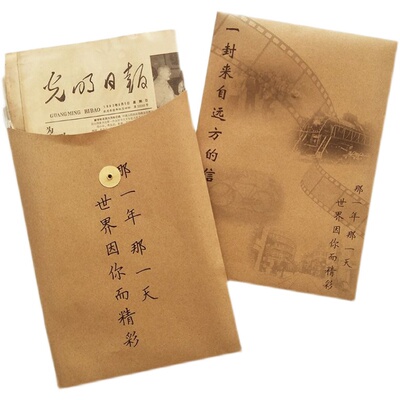 光明日报
GUANGMING RIBAO
那一年那一天
世界因你而精彩
一封来自远方的信
那一年那一天
世界因你而精彩